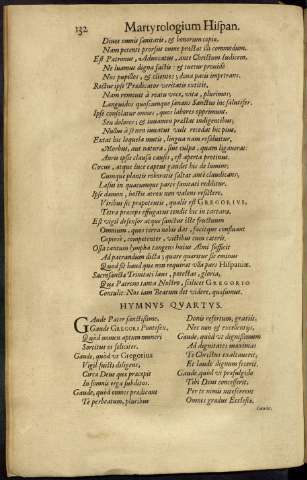 132 Martyrologium Hispan.
Dives omnis sanitatis, & honorum copia,
Nam petenti prorsus cuncta præstat illi commodum.
Est Patronus, Advocatus, ante Christum Iudicem,
Ne luamus digna factis: & tuetur providè
Nos pupillos, & clientes: dans pacis impetrans.
Rectus ipse Prædicator veritatis extitit,
Nam removit à reatu voce, vita, plurimos;
Languidos quoscumque sanans Sanctus hic salutifer.
Ipse consolatur omnes, quos labores opprimunt:
Seu dolores; & iuvamen præstat indigentibus;
Nullus à se non iuvatur
bic loquela mutis, lingua nam resolvitur,
Morbus, aut natura, sive culpa, quam ligaverat:
Auris ipsis clausa causis, est aperta protinus.
Circus, atque luce captus gaudet hic de lumine;
Cumque plantis roboratis saltat antè claudicans,
Lapsus in quacumque parte sanitati redditur.
Ipse dæmon, hostis atrox non valens resistere,
Viribus sic perpotentis, qualis est GREGORIVS,
Tetra præceps effugatus tendit hic in tartara.
Est vigil defensor atque sanctus iste fructuum
Omnium, quos terra nobis dat, facitque constant
competenter, victibus cum cæteris.
Ossa tantum lympha tangens huius Almi sufficit
Ad patrandum dicta; quare quæritur sic omnibus
Quòd sit hausta quæ non requirat ulla pars Hispaniæ.
Sacrosancta Trinitatis laus, potestas, gloria,
Qua Patronus tanta Nostro, scilicet GREGORIO
Contulit: Nos iam Beatum det videre, quæsumus.
HYMNVS QVARTVS.
GAude Pater sanctissime,
Gaude GREGORI Pontifex,
Quòd nomen aptum muneri
Sortitus es feliciter.
Gaude, quòd ut Gregorius
Vigil fuisti diligens,
Circa Deus quæ præcipit
In somnis erga subditos.
Gaude, quòd omnes prædicant
Te perbeatum, pluribus
Donis refertum, gratiis,
Nec non & excellentijs.
Gaude, quòd ut dignissimum
Ad dignitates maximas
Te Christus exaltaverit,
Et laude dignum fecerit.
Gaude, quòd ut præfulgido
Tibi Deus concesserit,
Per te nimis nitescerent
Omnes gradus Ecclesiæ.
Gaude,